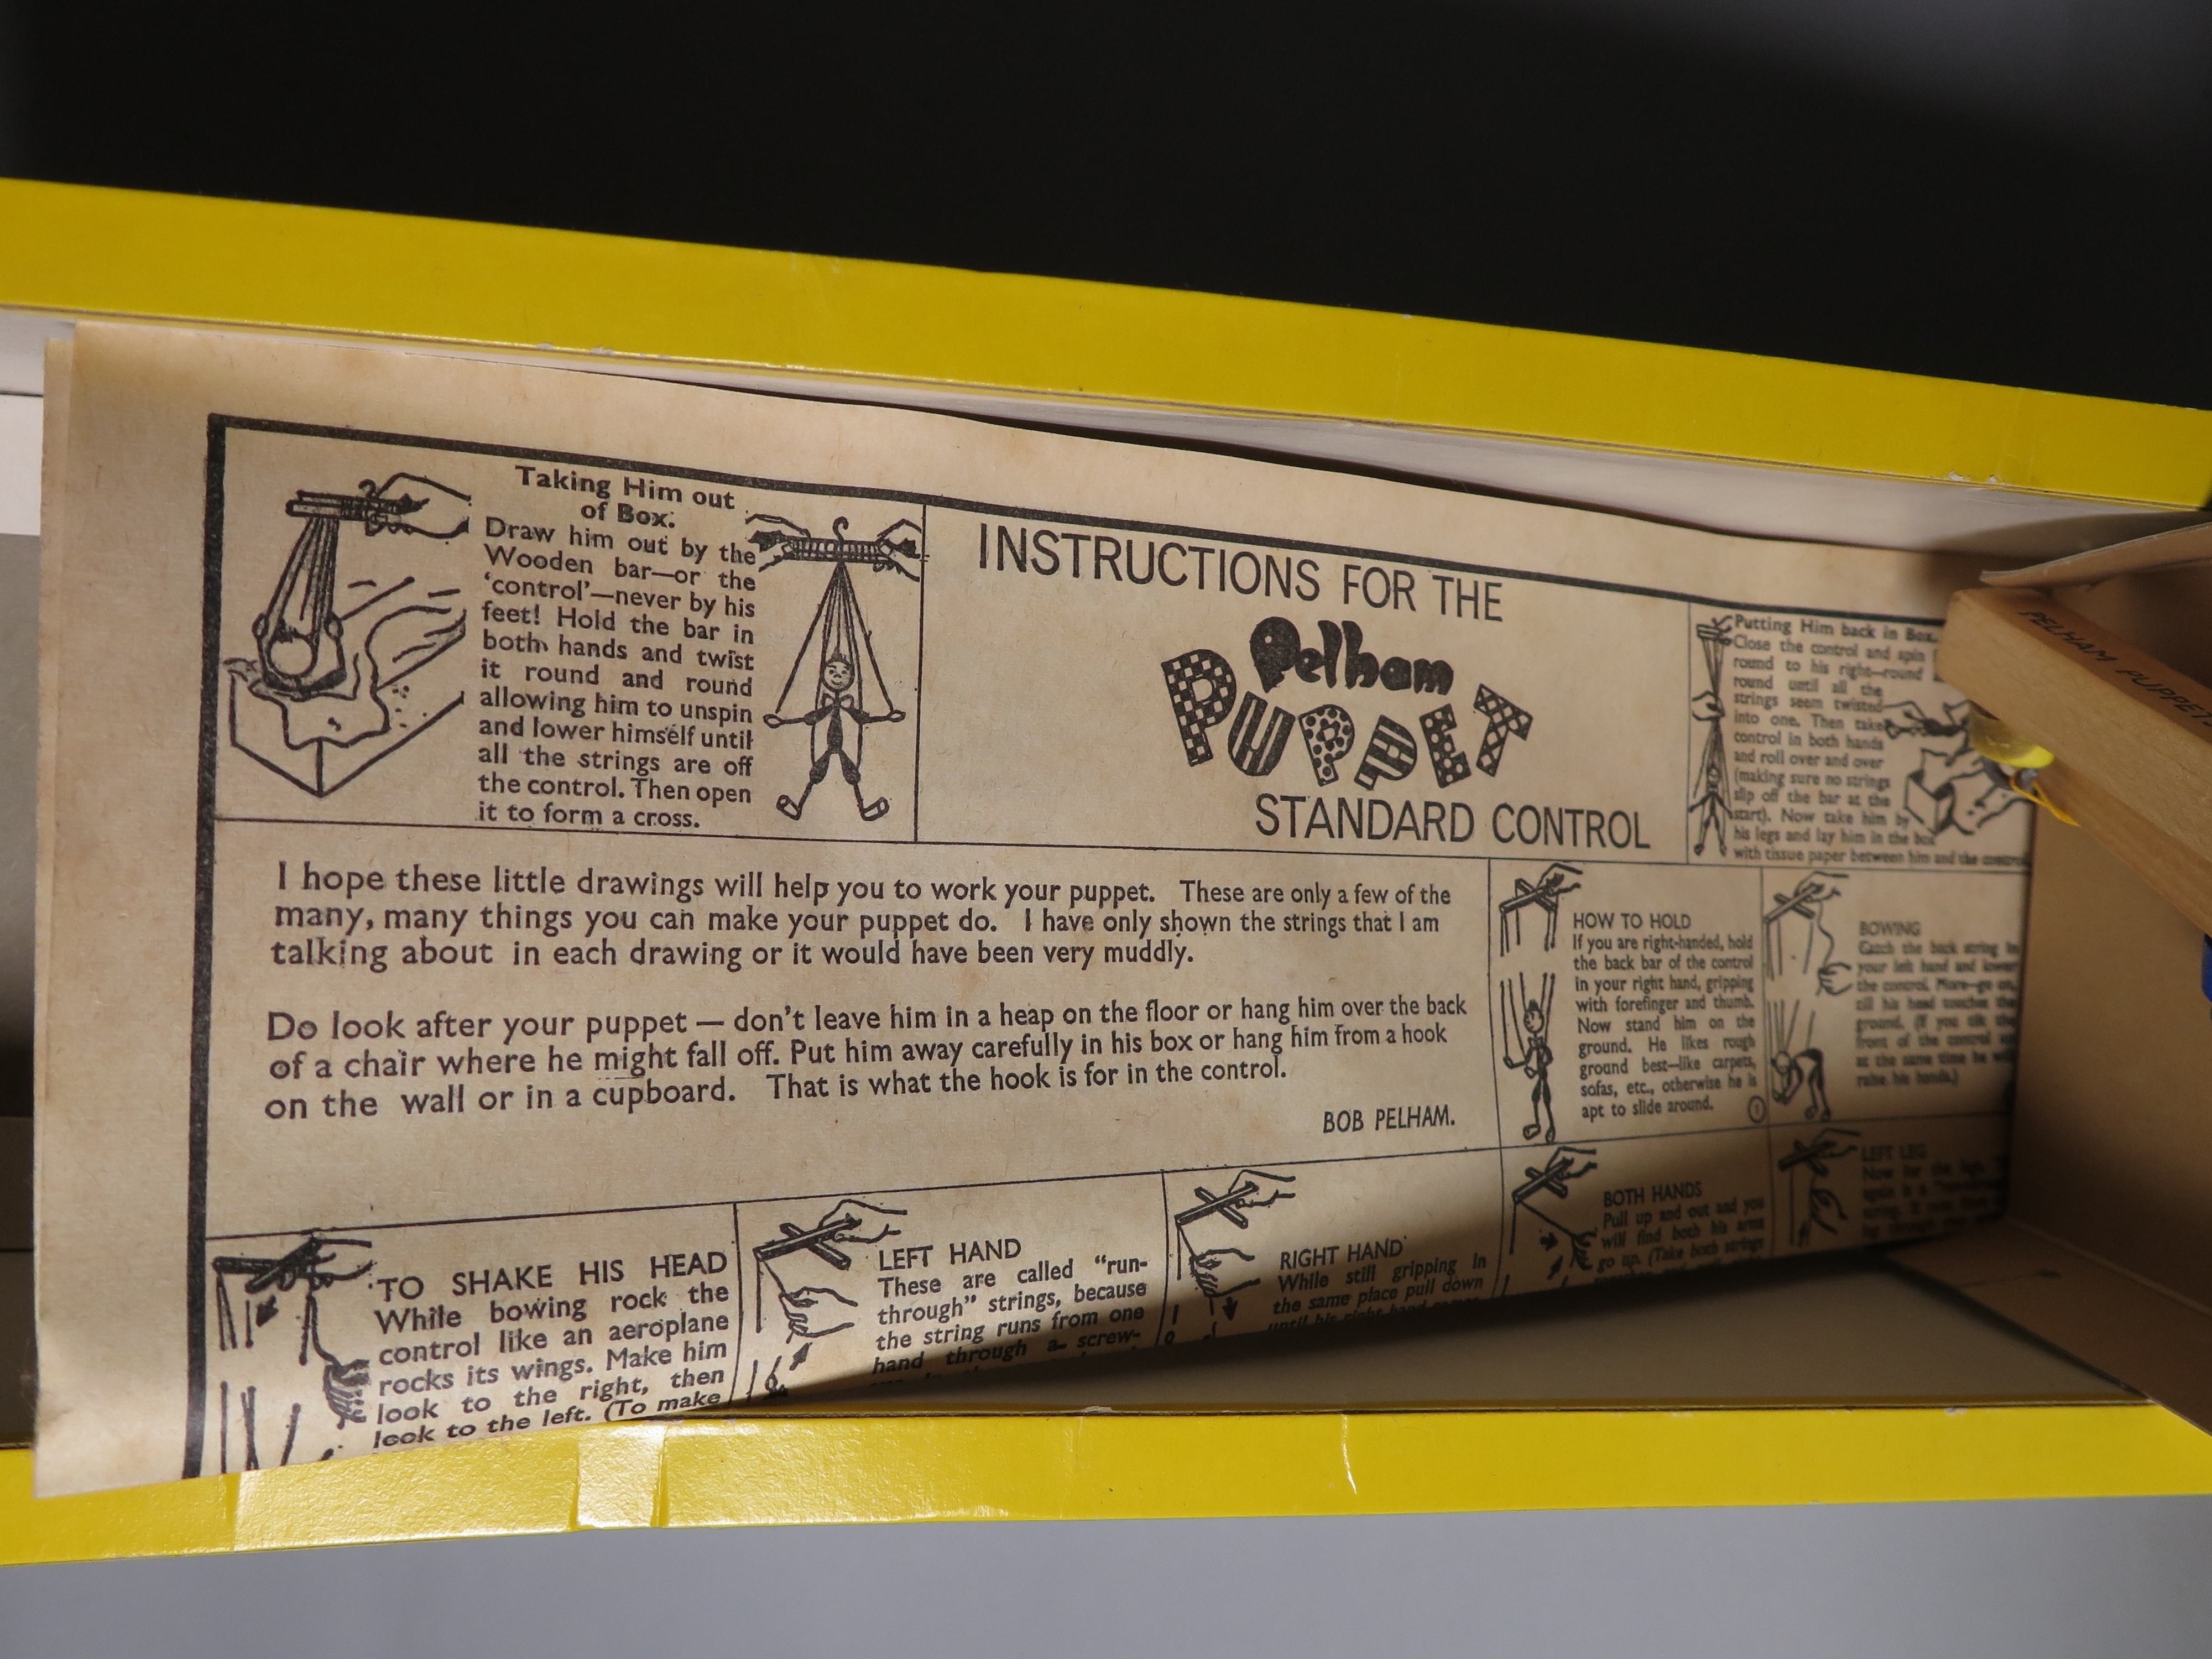 Taking Him out
of Box.
Draw him out by the
Wooden bar—or the
‘control’—never by his
feet! Hold the bar in
both hands and twist
it round and round
allowing him to unspin
and lower himself until
all the strings are off
the control. Then open
it to form a cross.
INSTRUCTIONS FOR THE
Pelham
PUPPET
STANDARD CONTROL
Putting Him back in Box.
Close the control and spin
round to his right—round
round until all the
strings seem twisted
into one. Then take
control in both hands
and roll over and over
(making sure no strings
slip off the bar at the
start). Now take him by
his legs and lay him in the box
with tissue paper between him and the control
PELHAM PUPPET
I hope these little drawings will help you to work your puppet. These are only a few of the
many, many things you can make your puppet do. I have only shown the strings that I am
talking about in each drawing or it would have been very muddly.
Do look after your puppet — don't leave him in a heap on the floor or hang him over the back
of a chair where he might fall off. Put him away carefully in his box or hang him from a hook
on the wall or in a cupboard. That is what the hook is for in the control.
BOB PELHAM.
HOW TO HOLD
If you are right-handed, hold
the back bar of the control
in your right hand, gripping
with forefinger and thumb.
Now stand him on the
ground. He likes rough
ground best—like carpets,
sofas, etc., otherwise he is
apt to slide around. 1
BOWING
Catch the back string in
your left hand and lower
the control. More—go on,
till his head touches the
ground. (If you tilt the
front of the control up
at the same time he will
raise his hands.)
TO SHAKE HIS HEAD
While bowing rock the
control like an aeroplane
rocks its wings. Make him
look to the right, then
look to the left. (To make
LEFT HAND
These are called “run-
through” strings, because
the string runs from one
hand through a screw-
RIGHT HAND
While still gripping in
the same place pull down
until his right hand
BOTH HANDS
Pull up and out and you
will find both his arms
go up. (Take both strings
LEFT LEG
Now for the legs.
again is a